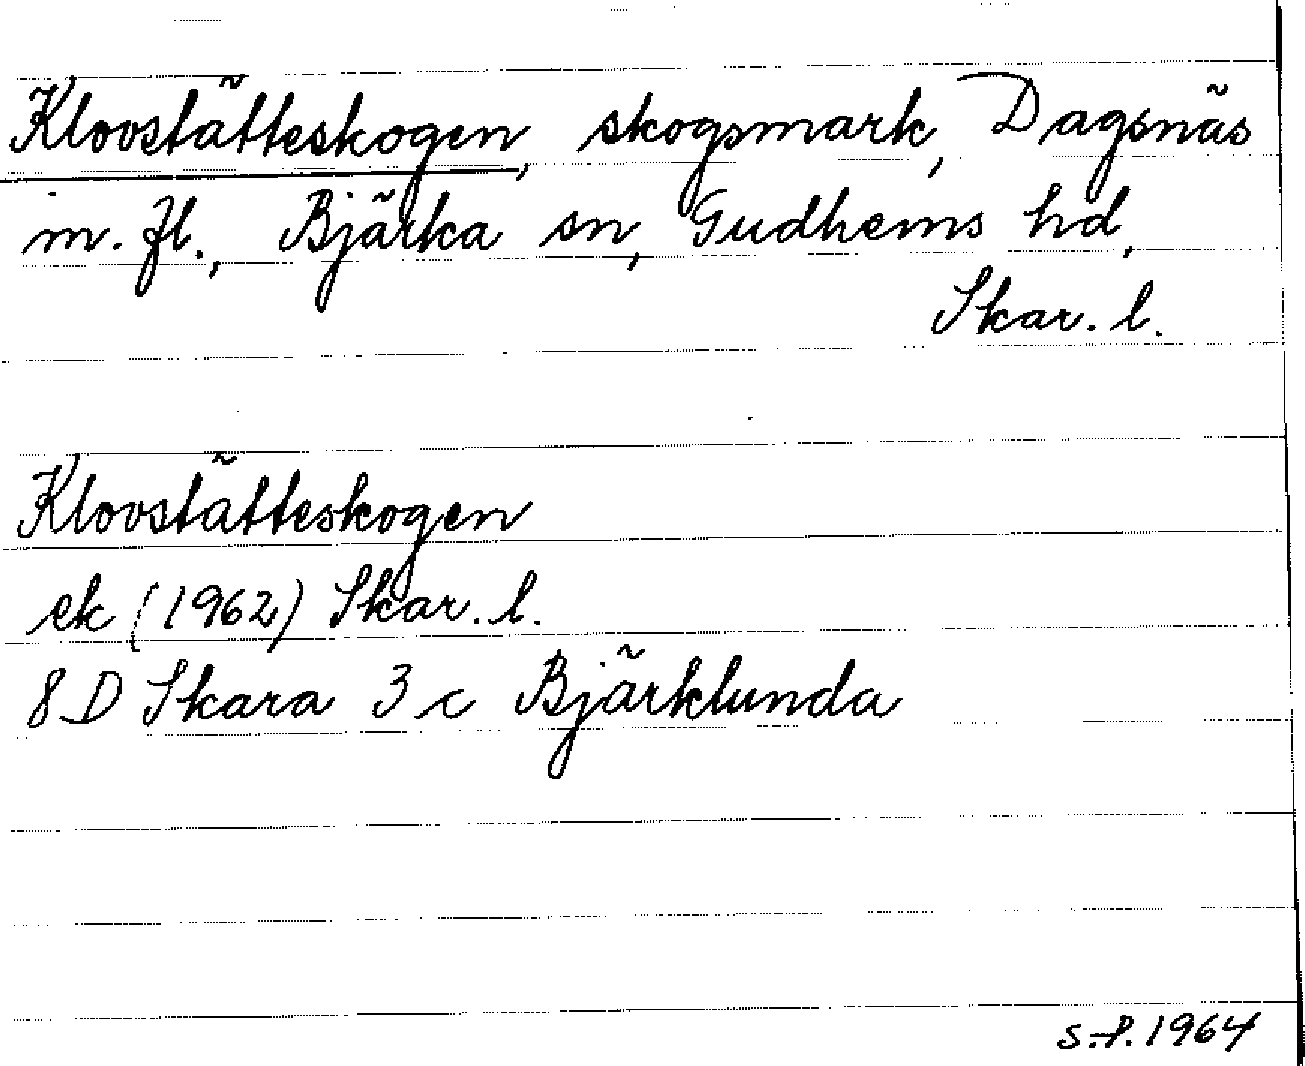 Klovstätteskogen, skogsmark, Dagsnäs
m. fl., Bjärka sn, Gudhems hd,
Skar. l.
Klovstätteskogen
ek (1962) Skar. l.
8 D Skara 3 c Bjärklunda
S.P. 1964